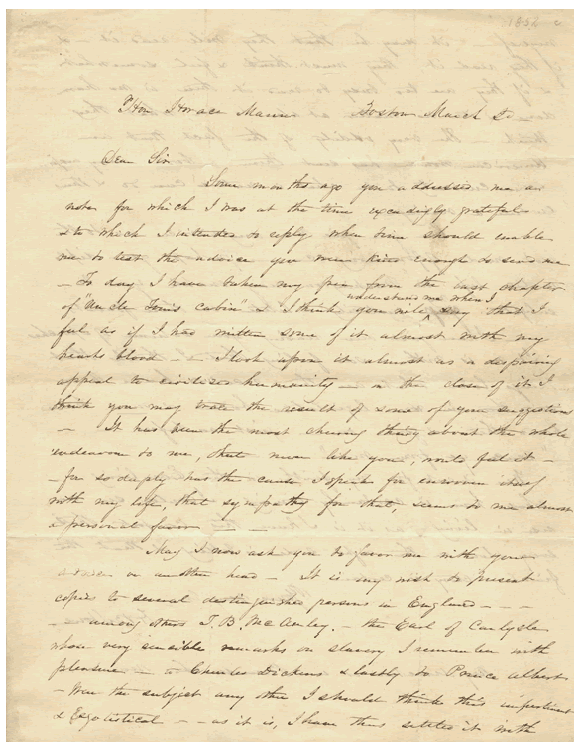 1852
Hon Horace Mann Boston March
Dear Sir
Some months ago you addressed me a
note for which I was at the time exceedingly grateful
& to which I intended to reply when time should enable
me to test the advice you were kind enough to send me
— To day I have taken my pen from the last chapter
of "Uncle Tom's Cabin" & I think you will understand me when I say that I
feel as if I had written some of it almost with my
heart's blood — — I look upon it almost as a despairing
appeal to civilized humanity — in the close of it I
think you may trace the result of some of your suggestions
— It has been the most cheering thing about the whole
endeavor to me, that men like you, would feel it —
— for so deeply has the cause I speak for inwoven itself
with my life, that sympathy for that, seems to me almost
a personal favor — —
May I now ask you to favor me with your
advice on another head — It is my wish to present
copies to several distinguished persons in England — — —
— among others T. B. McAuley. — the Earl of Carlysle
whose very sensible remarks on slavery I remember with
pleasure — to Charles Dickens & lastly to Prince Albert
— Were the subject any other I should think this impertinent
& Egotistical — — as it is, I have thus settled it with